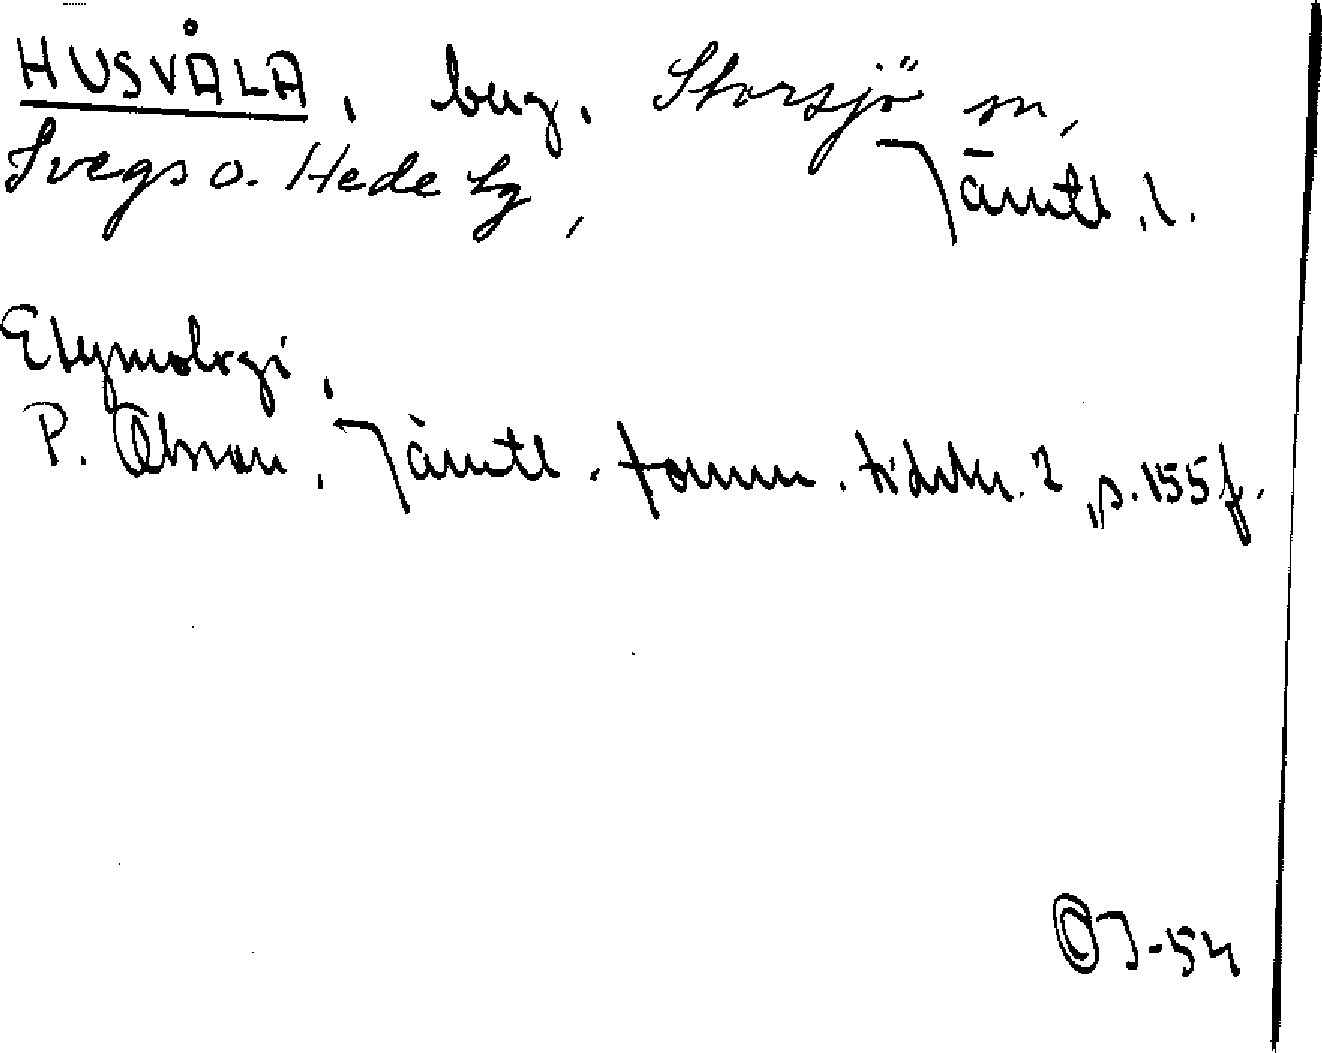 HUSVÅLA, berg. Storsjö sn,
Svegs o. Hede tg, Jämtl. l.
Etymologi.
P. Olsson. Jämtl. fornm. tidskr. 2, p. 155 f.
OJ-54